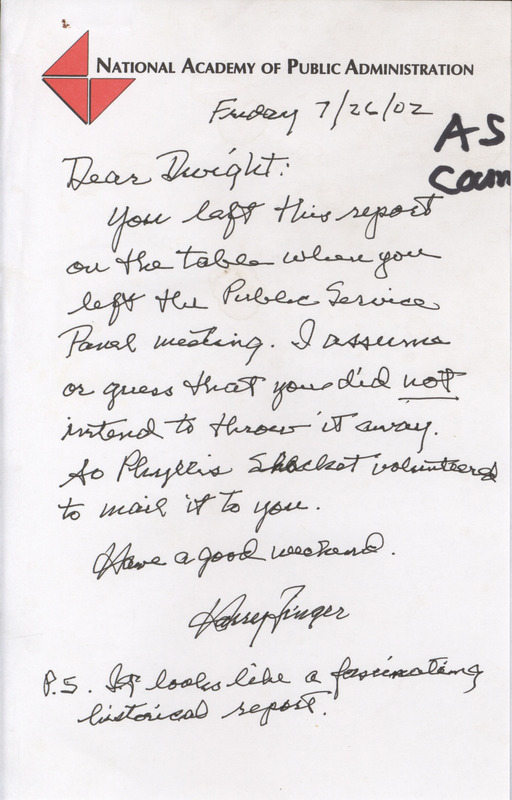 NATIONAL ACADEMY OF PUBLIC ADMINISTRATION
Friday 7/26/02
AS
Com
Dear Dwight:
You left this report
on the table when you
left the Public Service
Panel meeting. I assume
or guess that you did not
intend to throw it away.
So Phyllis Shocket volunteered
to mail it to you.
Have a good weekend.
Harvey Finger
P.S. It looks like a fascinating
historical report.